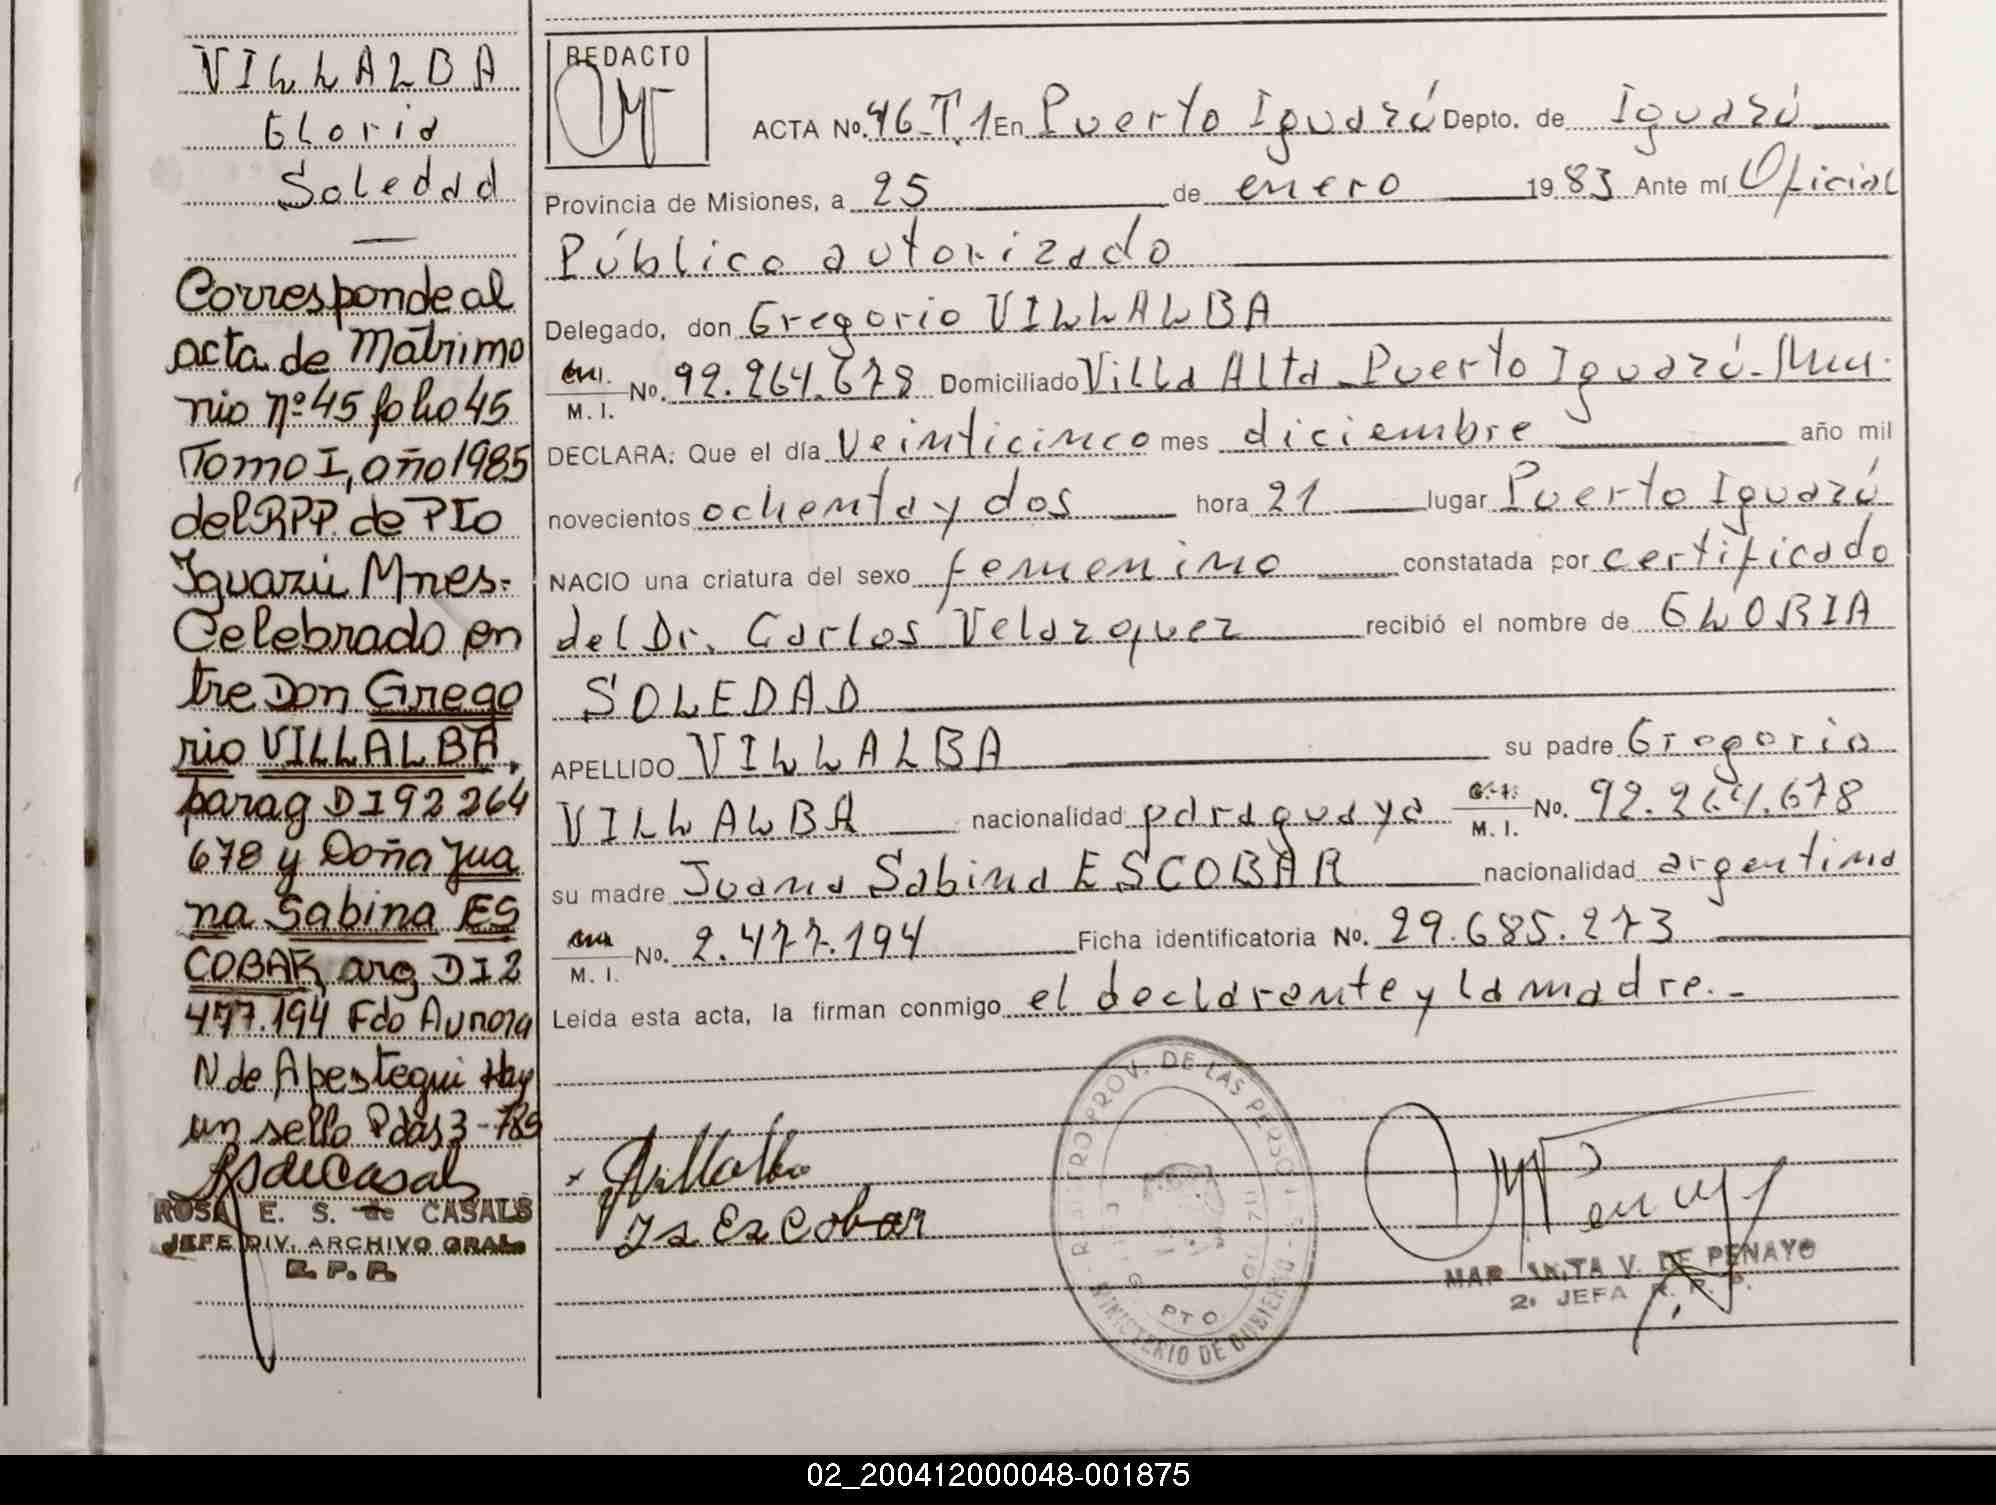 VILLALBA
Gloria
Soledad
Corresponde al
acta de Matrimo
nio nº 45 folio 45
Tomo I, año 1985
del RPP. de PTO
Iguazú Mnes.
Celebrado en
tre Don Grego
rio VILLALBA,
parag DI 92 264
678 y Doña Jua
na Sabina ES
COBAR arg DI 2
477.194 Fdo Aurora
N de Apestegui Hay
un sello Pdas 3-789
RSdeCasals
ROSA E. S. de CASALS
JEFE DIV. ARCHIVO GRAL.
R. P. P.
REDACTO
ACTA No. 46 T1 En Puerto Iguazú Depto. de Iguazú
Provincia de Misiones, a 25 de enero 1983 Ante mí Oficial
Público autorizado
Delegado, don Gregorio VILLALBA
M. I. No. 92.264.678 Domiciliado Villa Alta Puerto Iguazú-Mnes.
DECLARA: Que el día veinticinco mes diciembre año mil
novecientos ochenta y dos hora 21 lugar Puerto Iguazú
NACIO una criatura del sexo femenino constatada por certificado
del Dr. Carlos Velazquez recibió el nombre de GLORIA
SOLEDAD
APELLIDO VILLALBA su padre Gregorio
VILLALBA nacionalidad paraguaya M. I. No. 92.264.678
su madre Juana Sabina ESCOBAR nacionalidad argentina
M. I. No. 2.477.194 Ficha identificatoria No. 29.685.273
Leída esta acta, la firman conmigo el declarante y la madre.-
Villalba
Js Escobar
REGISTRO PROV. DE LAS PERSONAS
MINISTERIO DE GOBIERNO
PTO.
V. DE PENAYO
2ª JEFA R. P. P.
02_200412000048-001875